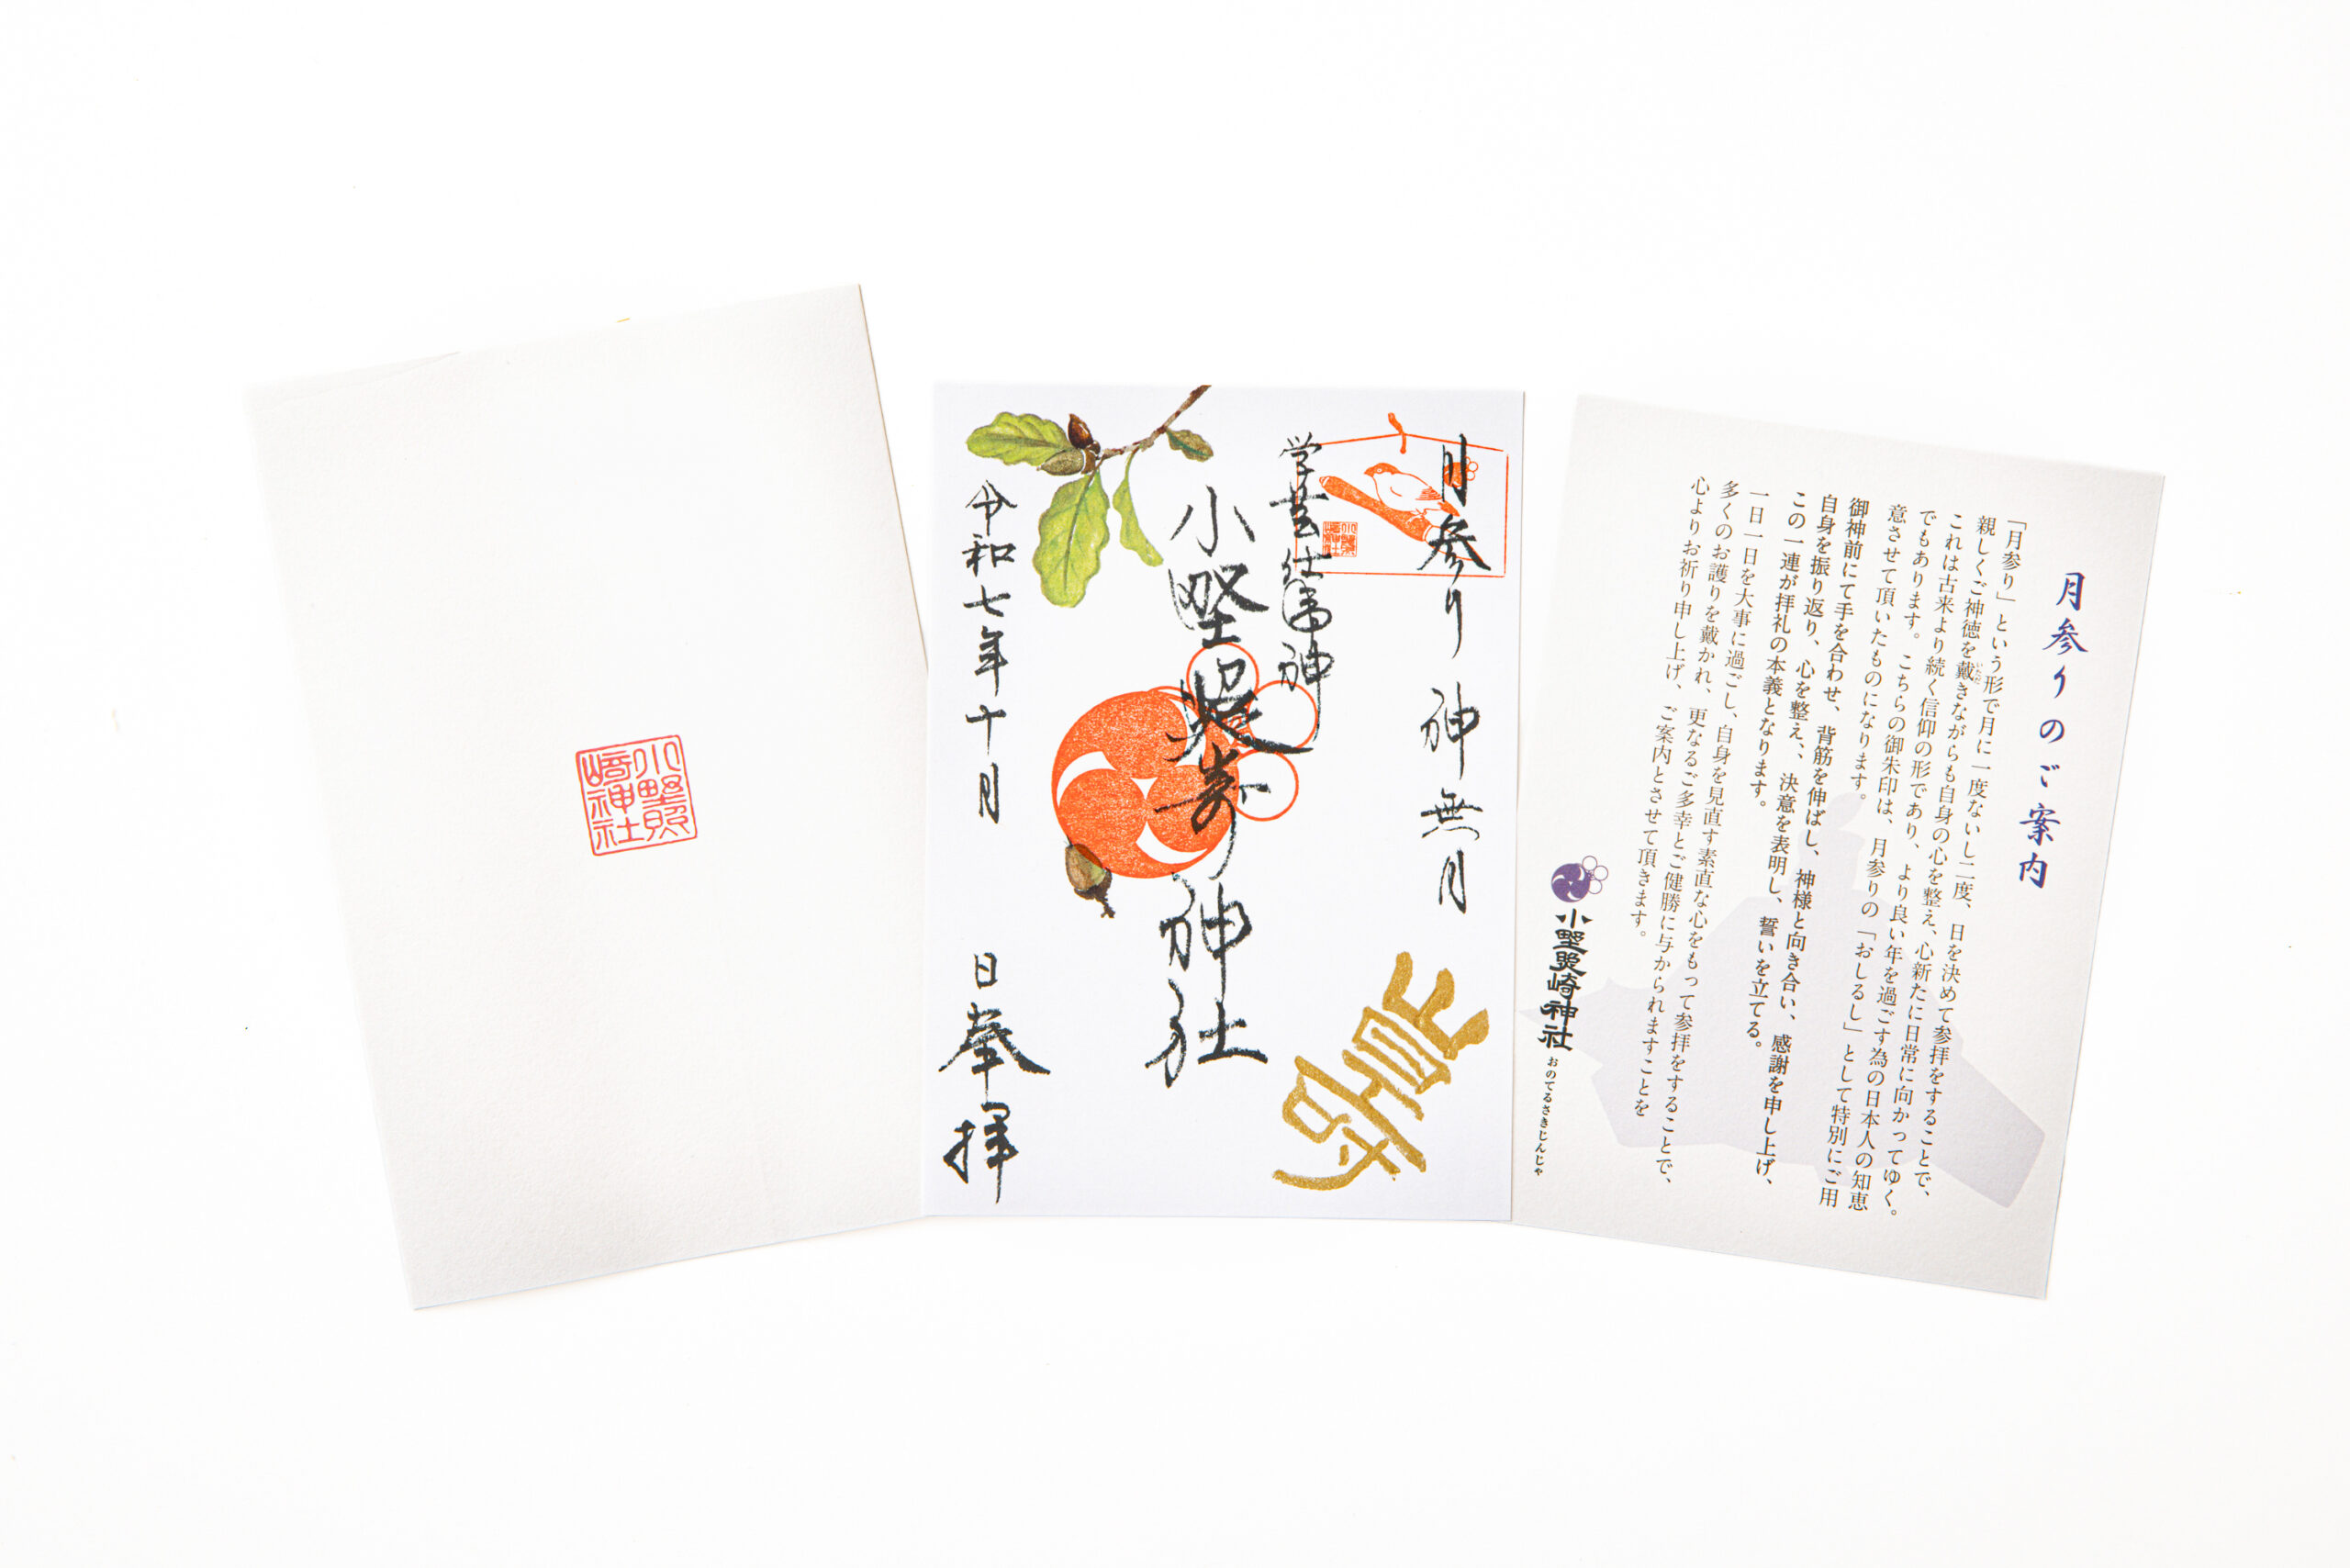 小野照
崎神社
月参り 神無月
学芸仕事神
小野照崎神社
令和七年十月 日奉拝
月参りのご案内
「月参り」という形で月に一度ないし二度、日を決めて参拝をすることで、
親しくご神徳を戴きながらも自身の心を整え、心新たに日常に向かってゆく。
これは古来より続く信仰の形であり、より良い年を過ごす為の日本人の知恵
でもあります。こちらの御朱印は、月参りの「おしるし」として特別にご用
意させて頂いたものになります。
御神前にて手を合わせ、背筋を伸ばし、神様と向き合い、感謝を申し上げ、
自身を振り返り、心を整え、、決意を表明し、誓いを立てる。
この一連が拝礼の本義となります。
一日一日を大事に過ごし、自身を見直す素直な心をもって参拝をすることで、
多くのお護りを戴かれ、更なるご多幸とご健勝に与かられますことを
心よりお祈り申し上げ、ご案内とさせて頂きます。
小野照崎神社 おのてるさきじんじゃ